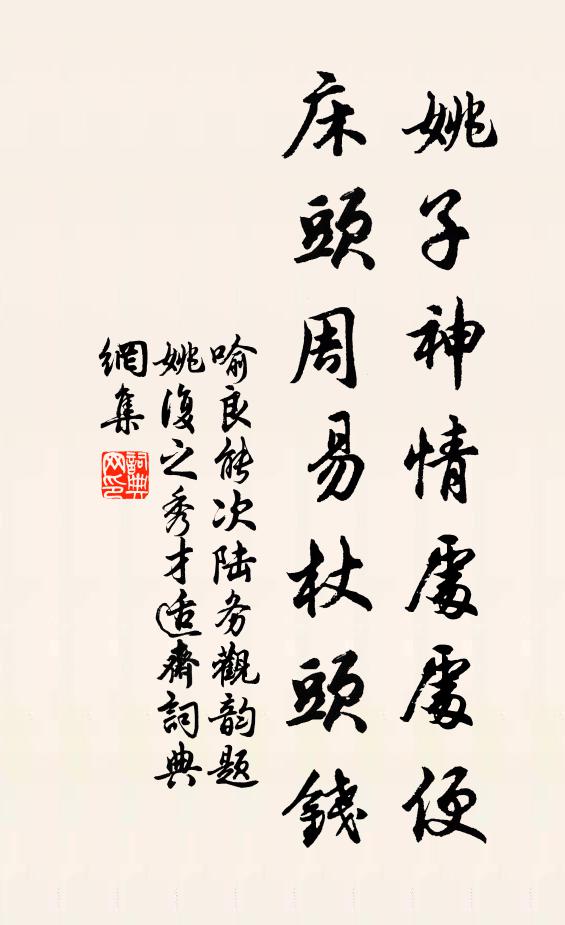 姚子神情處處便
床頭周易杖頭錢
喻良能次陆务觀韵题
姚復之秀才适齋詞典
網集
詞典
网印